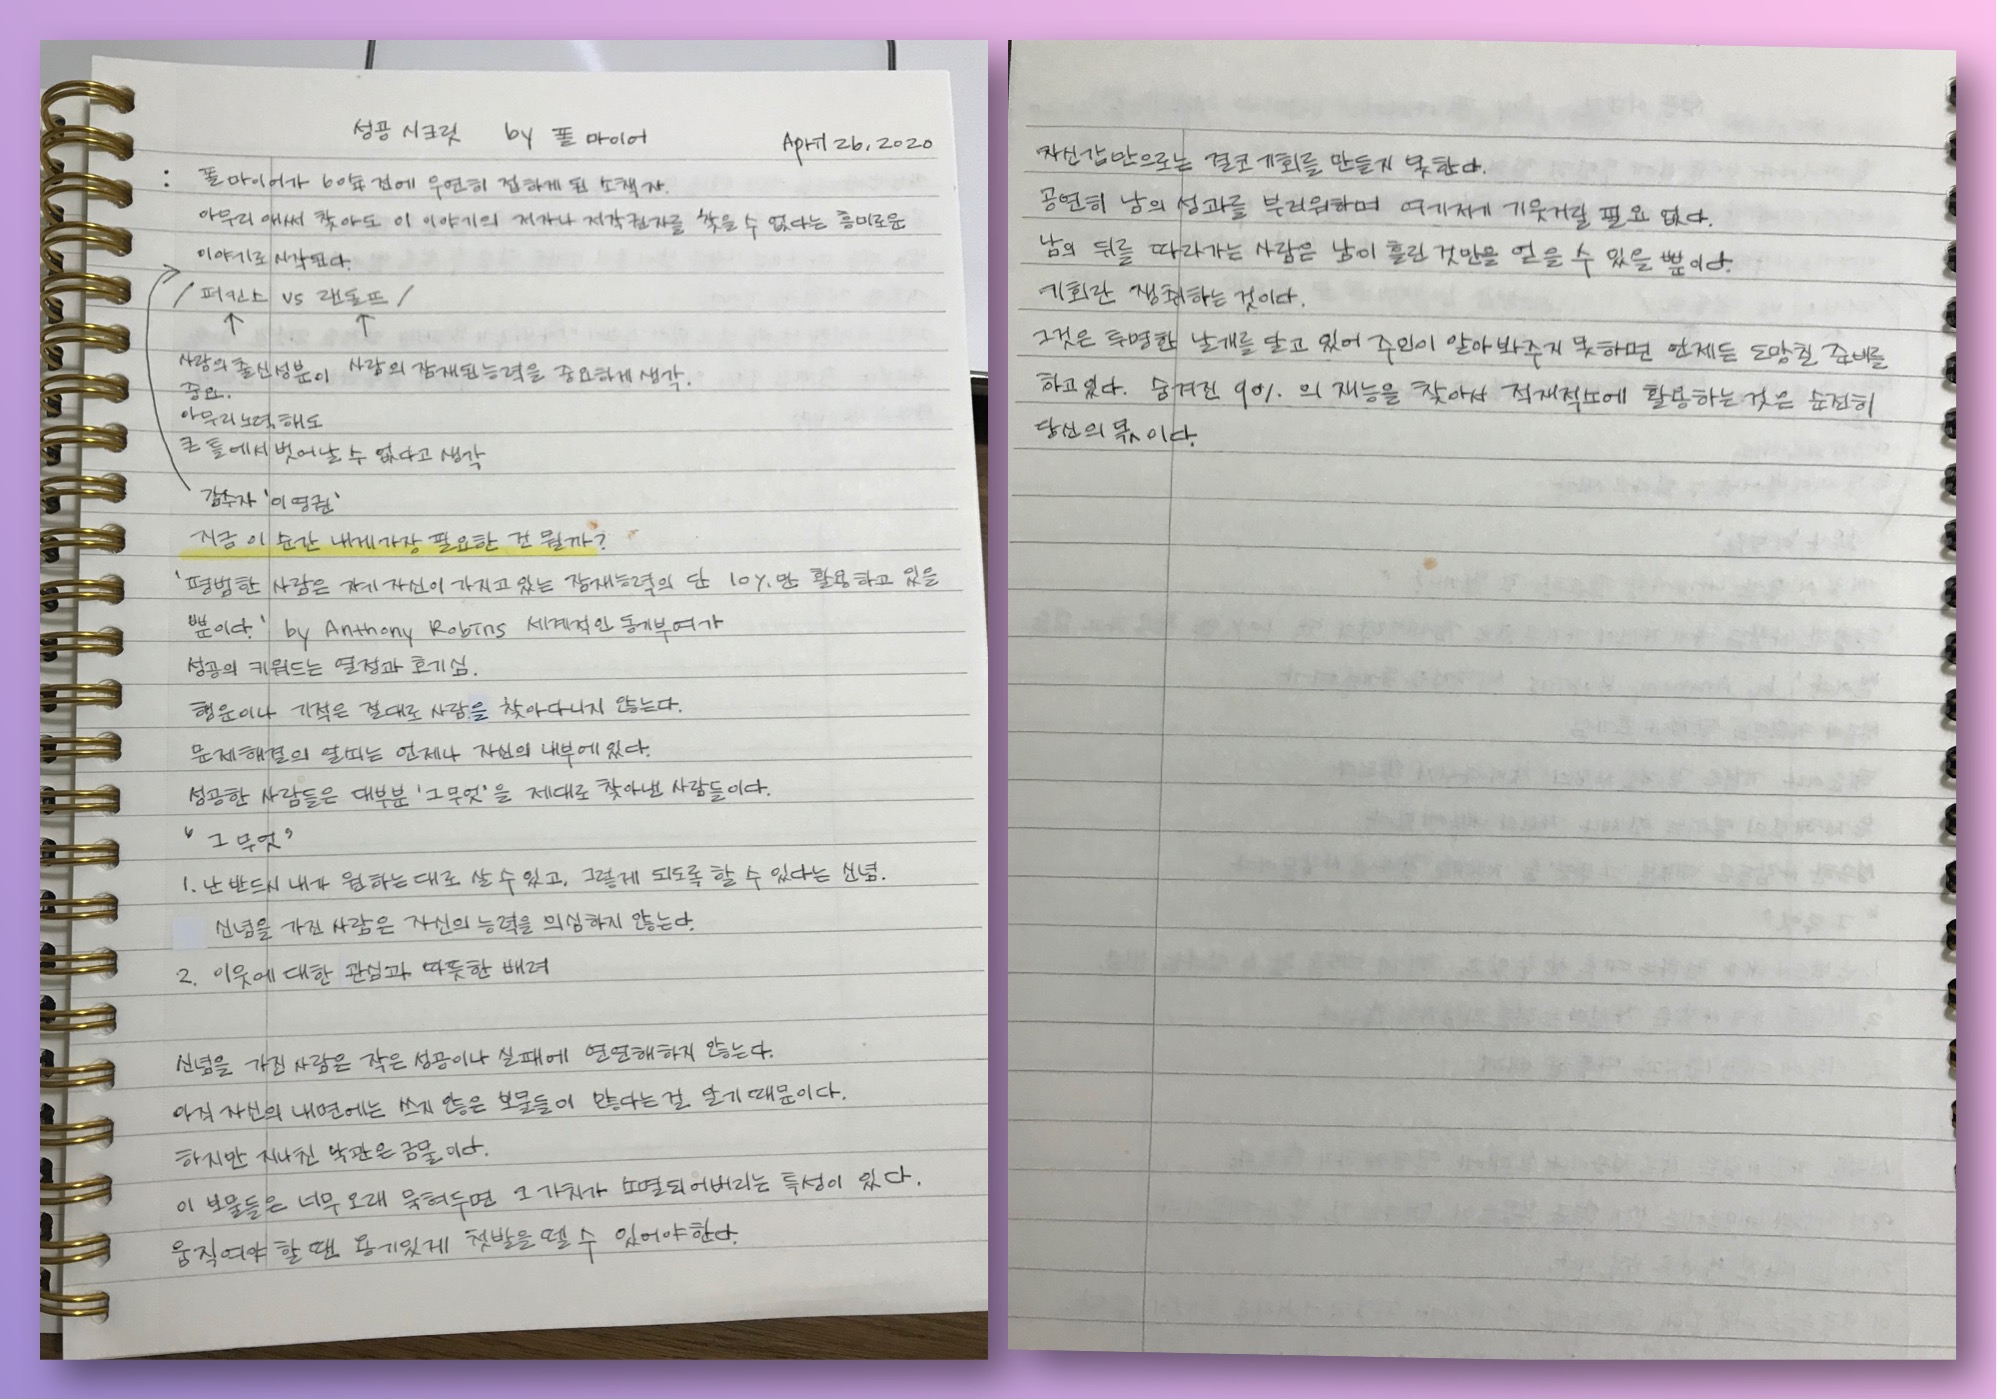 성공 시크릿 by 폴 마이어 April 26, 2020
: 폴 마이어가 60年 전에 우연히 접하게 된 소책자.
아무리 애써 찾아도 이 이야기의 저자나 저작권자를 찾을 수 없다는 흥미로운
이야기로 시작된다.
/ 퍼킨스 vs 랜돌프 /
↑ ↑
사람의 출신성분이 사람의 잠재된능력을 중요하게 생각.
중요.
아무리노력해도
큰 틀에서 벗어날 수 없다고 생각
감수자 '이영권'
지금 이 순간 내게가장 필요한 건 뭘까?
'평범한 사람은 자기 자신이 가지고 있는 잠재능력의 단 10%만 활용하고 있을
뿐이다.' by Anthony Robins 세계적인 동기부여가
성공의 키워드는 열정과 호기심.
행운이나 기적은 절대로 사람을 찾아다니지 않는다.
문제해결의 열쇠는 언제나 자신의 내부에 있다.
성공한 사람들은 대부분 '그무엇'을 제대로 찾아낸 사람들이다.
"그 무엇"
1. 난 반드시 내가 원하는 대로 살 수 있고, 그렇게 되도록 할 수 있다는 신념.
신념을 가진 사람은 자신의 능력을 의심하지 않는다.
2. 이웃에 대한 관심과 따뜻한 배려
신념을 가진 사람은 작은 성공이나 실패에 연연해하지 않는다.
아직 자신의 내면에는 쓰지 않은 보물들이 많다는걸 알기 때문이다.
하지만 지나친 낙관은 금물이다.
이 보물들은 너무 오래 묵혀두면 그 가치가 소멸되어버리는 특성이 있다.
움직여야 할 땐 용기있게 첫발을 뗄 수 있어야한다.
자신감만으로는 결코 기회를 만들지 못한다.
공연히 남의 성과를 부러워하며 여기저기 기웃거릴 필요 없다.
남의 뒤를 따라가는 사람은 남이 흘린 것만을 얻을 수 있을 뿐이다.
기회란 쟁취하는 것이다.
그것은 투명한 날개를 달고 있어 주인이 알아 봐주지 못하면 언제든 도망칠 준비를
하고있다. 숨겨진 90%의 재능을 찾아서 적재적소에 활용하는 것은 순전히
당신의 몫이다.